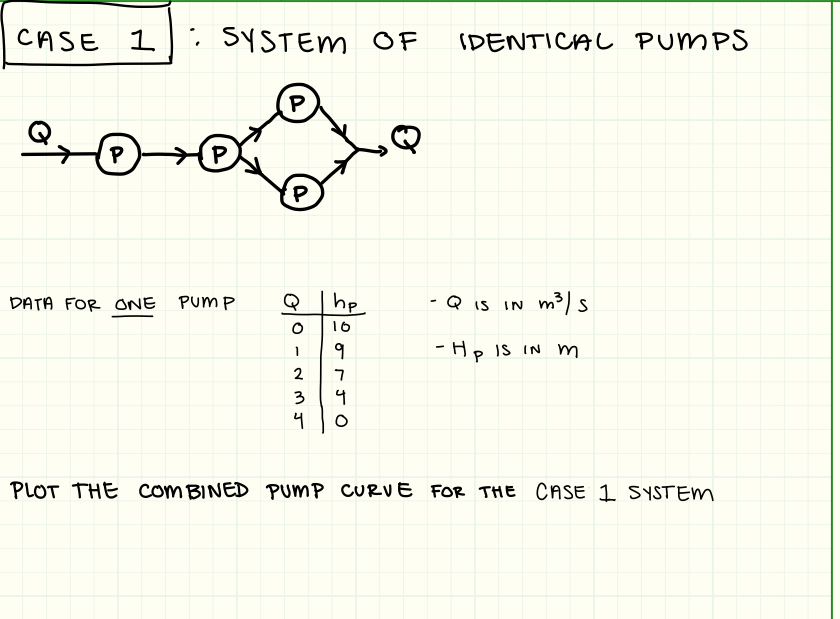 CASE 1 : SYSTEM OF IDENTICAL PUMPS
P
Q P P Q
P
DATA FOR ONE PUMP Q hp - Q IS IN m³/s
0 10
1 9 - Hp IS IN m
2 7
3 4
4 0
PLOT THE COMBINED PUMP CURVE FOR THE CASE 1 SYSTEM